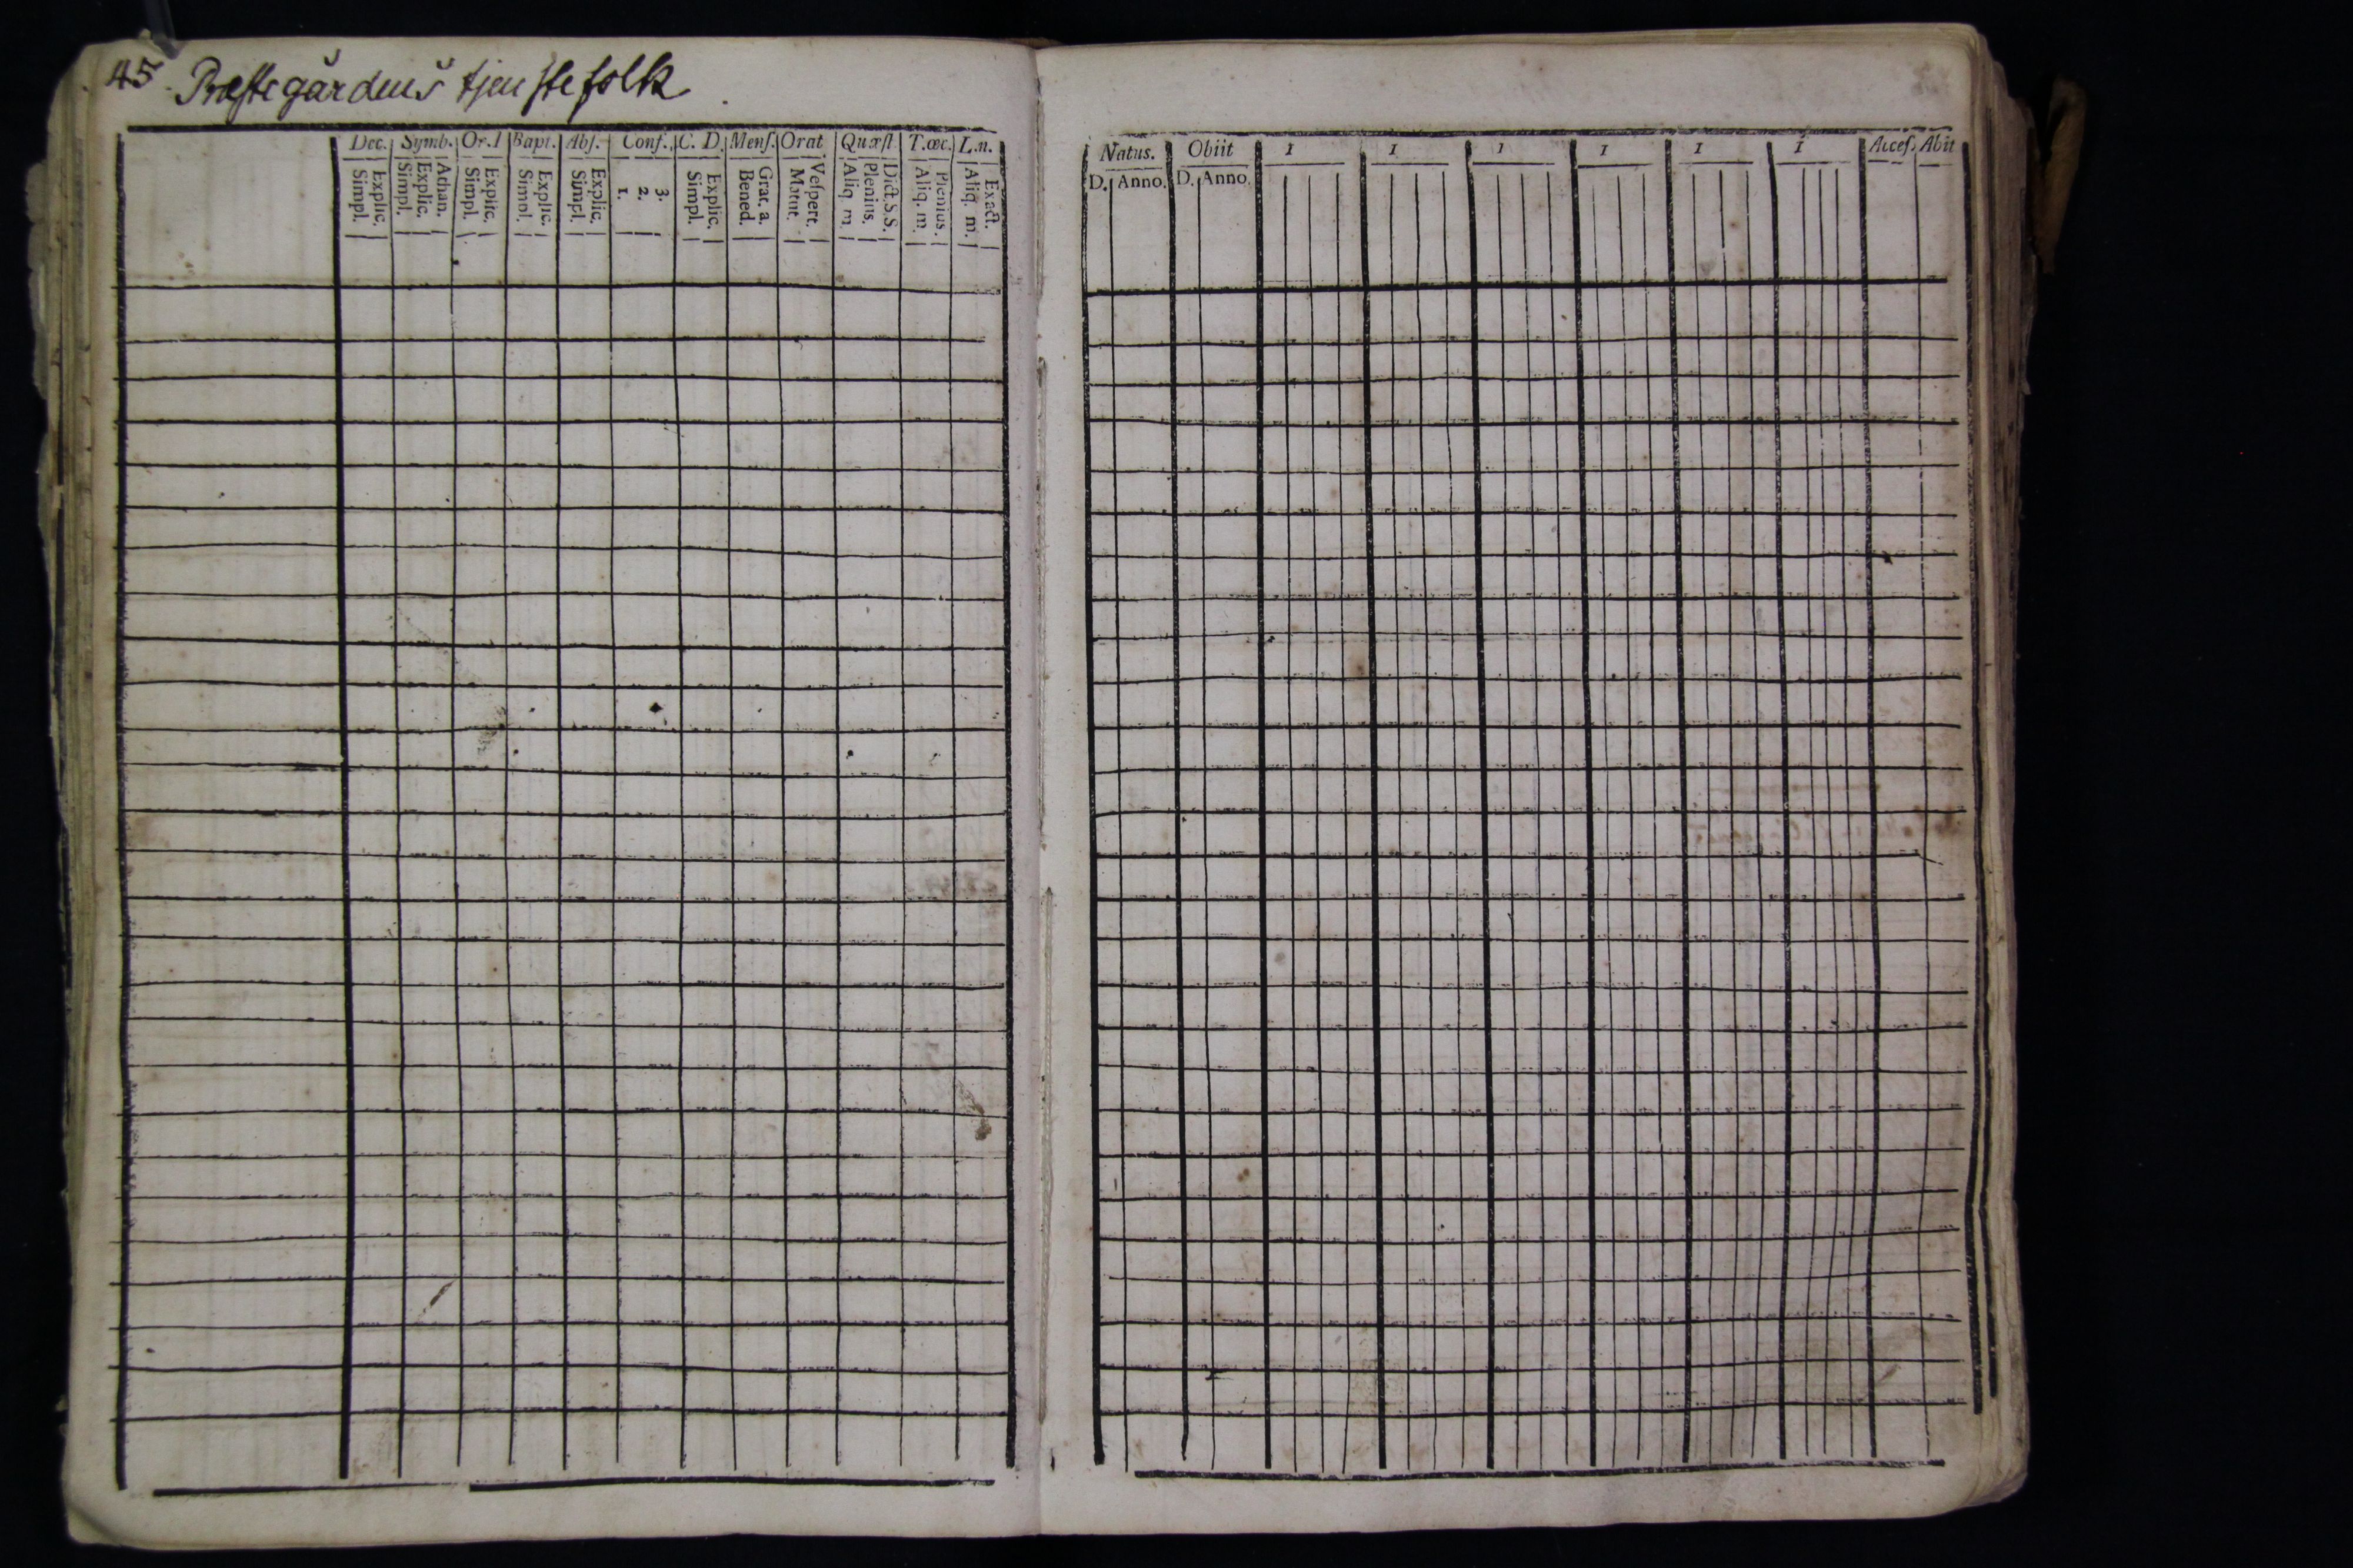 45. Præstegårdens tjenstefolk
Dec. Symb. Or.I Bapt. Abſ. Conf. C. D. Menſ. Orat Quæſt. T.œc. L.n.
Explic. Simpl. Athan. Explic. Simpl. Explic. Simpl. Explic. Simpl. Explic. Simpl. 3. 2. 1. Explic. Simpl. Grat. a. Bened. Veſpert. Matut. Dict. S.S. Plenius. Aliq. m. Plenius. Aliq. m. Exact. Aliq. m.
Natus. Obiit I I I I I I Acceſ. Abit
D. Anno. D. Anno.